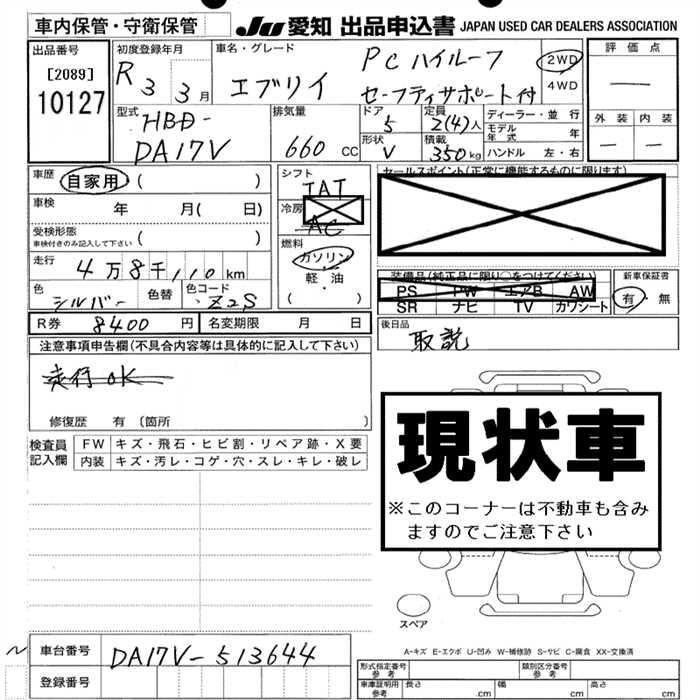 車内保管・守衛保管
JU 愛知 出品申込書 JAPAN USED CAR DEALERS ASSOCIATION
出品番号 初度登録年月 車名・グレード 評価点
[2089] R3 3月 エブリイ PCハイルーフ 2WD
10127 セーフティサポート付 4WD
型式 排気量 ドア 定員 ディーラー・並行 外装 内装
HBD- 5 2(4)人 モデル年式 年
DA17V 660cc 形状 積載 ハンドル 左・右
V 350kg
車歴 自家用 ( ) シフト セールスポイント(正常に機能するものに限ります)
車検 年 月( 日) IAT
冷房 AC
受検形態 ( )
車検付きのみ記入して下さい
燃料
走行 4万8千110km ガソリン 装備品(純正品に限り○をつけてください) 新車保証書
軽・油 PS PW エアB AW 有・無
色 シルバー 色替 色コード Z2S ( ) SR ナビ TV カワシート
R券 8400円 名変期限 月 日 後日品
取説
注意事項申告欄(不具合内容等は具体的に記入して下さい)
走行OK
修復歴 有 (箇所 )
現状車
※このコーナーは不動車も含みますのでご注意下さい
検査員記入欄 FW キズ・飛石・ヒビ割・リペア跡・X要
内装 キズ・汚レ・コゲ・穴・スレ・キレ・破レ
スペア
A-キズ E-エクボ U-凹み W-補修跡 S-サビ C-腐食 XX-交換済
車台番号 DA17V-513644
登録番号
形式指定番号 参考 類別区分番号 参考
車庫証明用 参考 長さ .cm 幅 .cm 高さ .cm